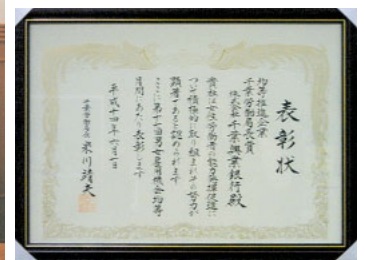 表彰状
均等推進企業
千葉労働局長賞
株式会社千葉興業銀行殿
貴社は女性労働者の能力発揮促進に
ついて積極的に取り組まれその努力が
顕著であると認められます
ここに第十七回男女雇用機会均等
月間にあたり表彰します
平成十四年六月
千葉労働局長